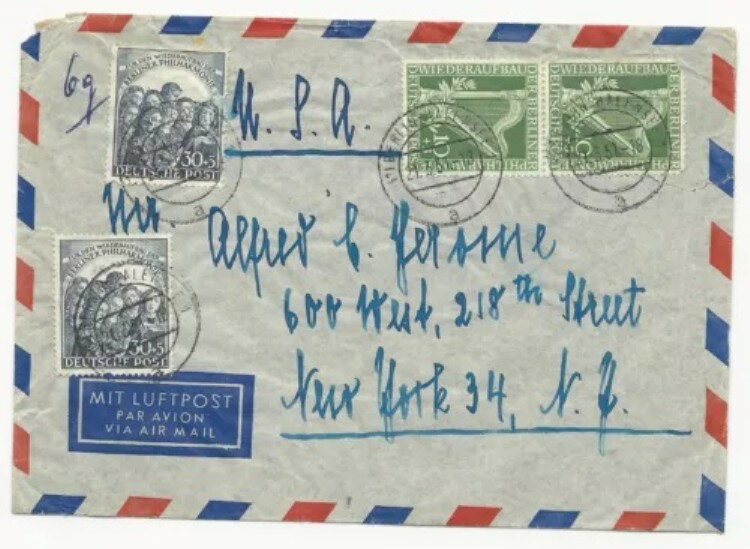 6g
FÜR DEN WIEDERAUFBAU DER
BERLINER PHILHARMONIE
30+5
DEUTSCHE POST
U. S. A.
WIEDERAUFBAU DER BERLINER PHILHARMONIE
DEUTSCHE POST
10+5
WIEDERAUFBAU DER BERLINER PHILHARMONIE
DEUTSCHE POST
a
a
a
Mr
Alfred C. Jerome
600 West, 218th Street
New York 34, N. Y.
FÜR DEN WIEDERAUFBAU DER
BERLINER PHILHARMONIE
30+5
DEUTSCHE POST
MIT LUFTPOST
PAR AVION
VIA AIR MAIL